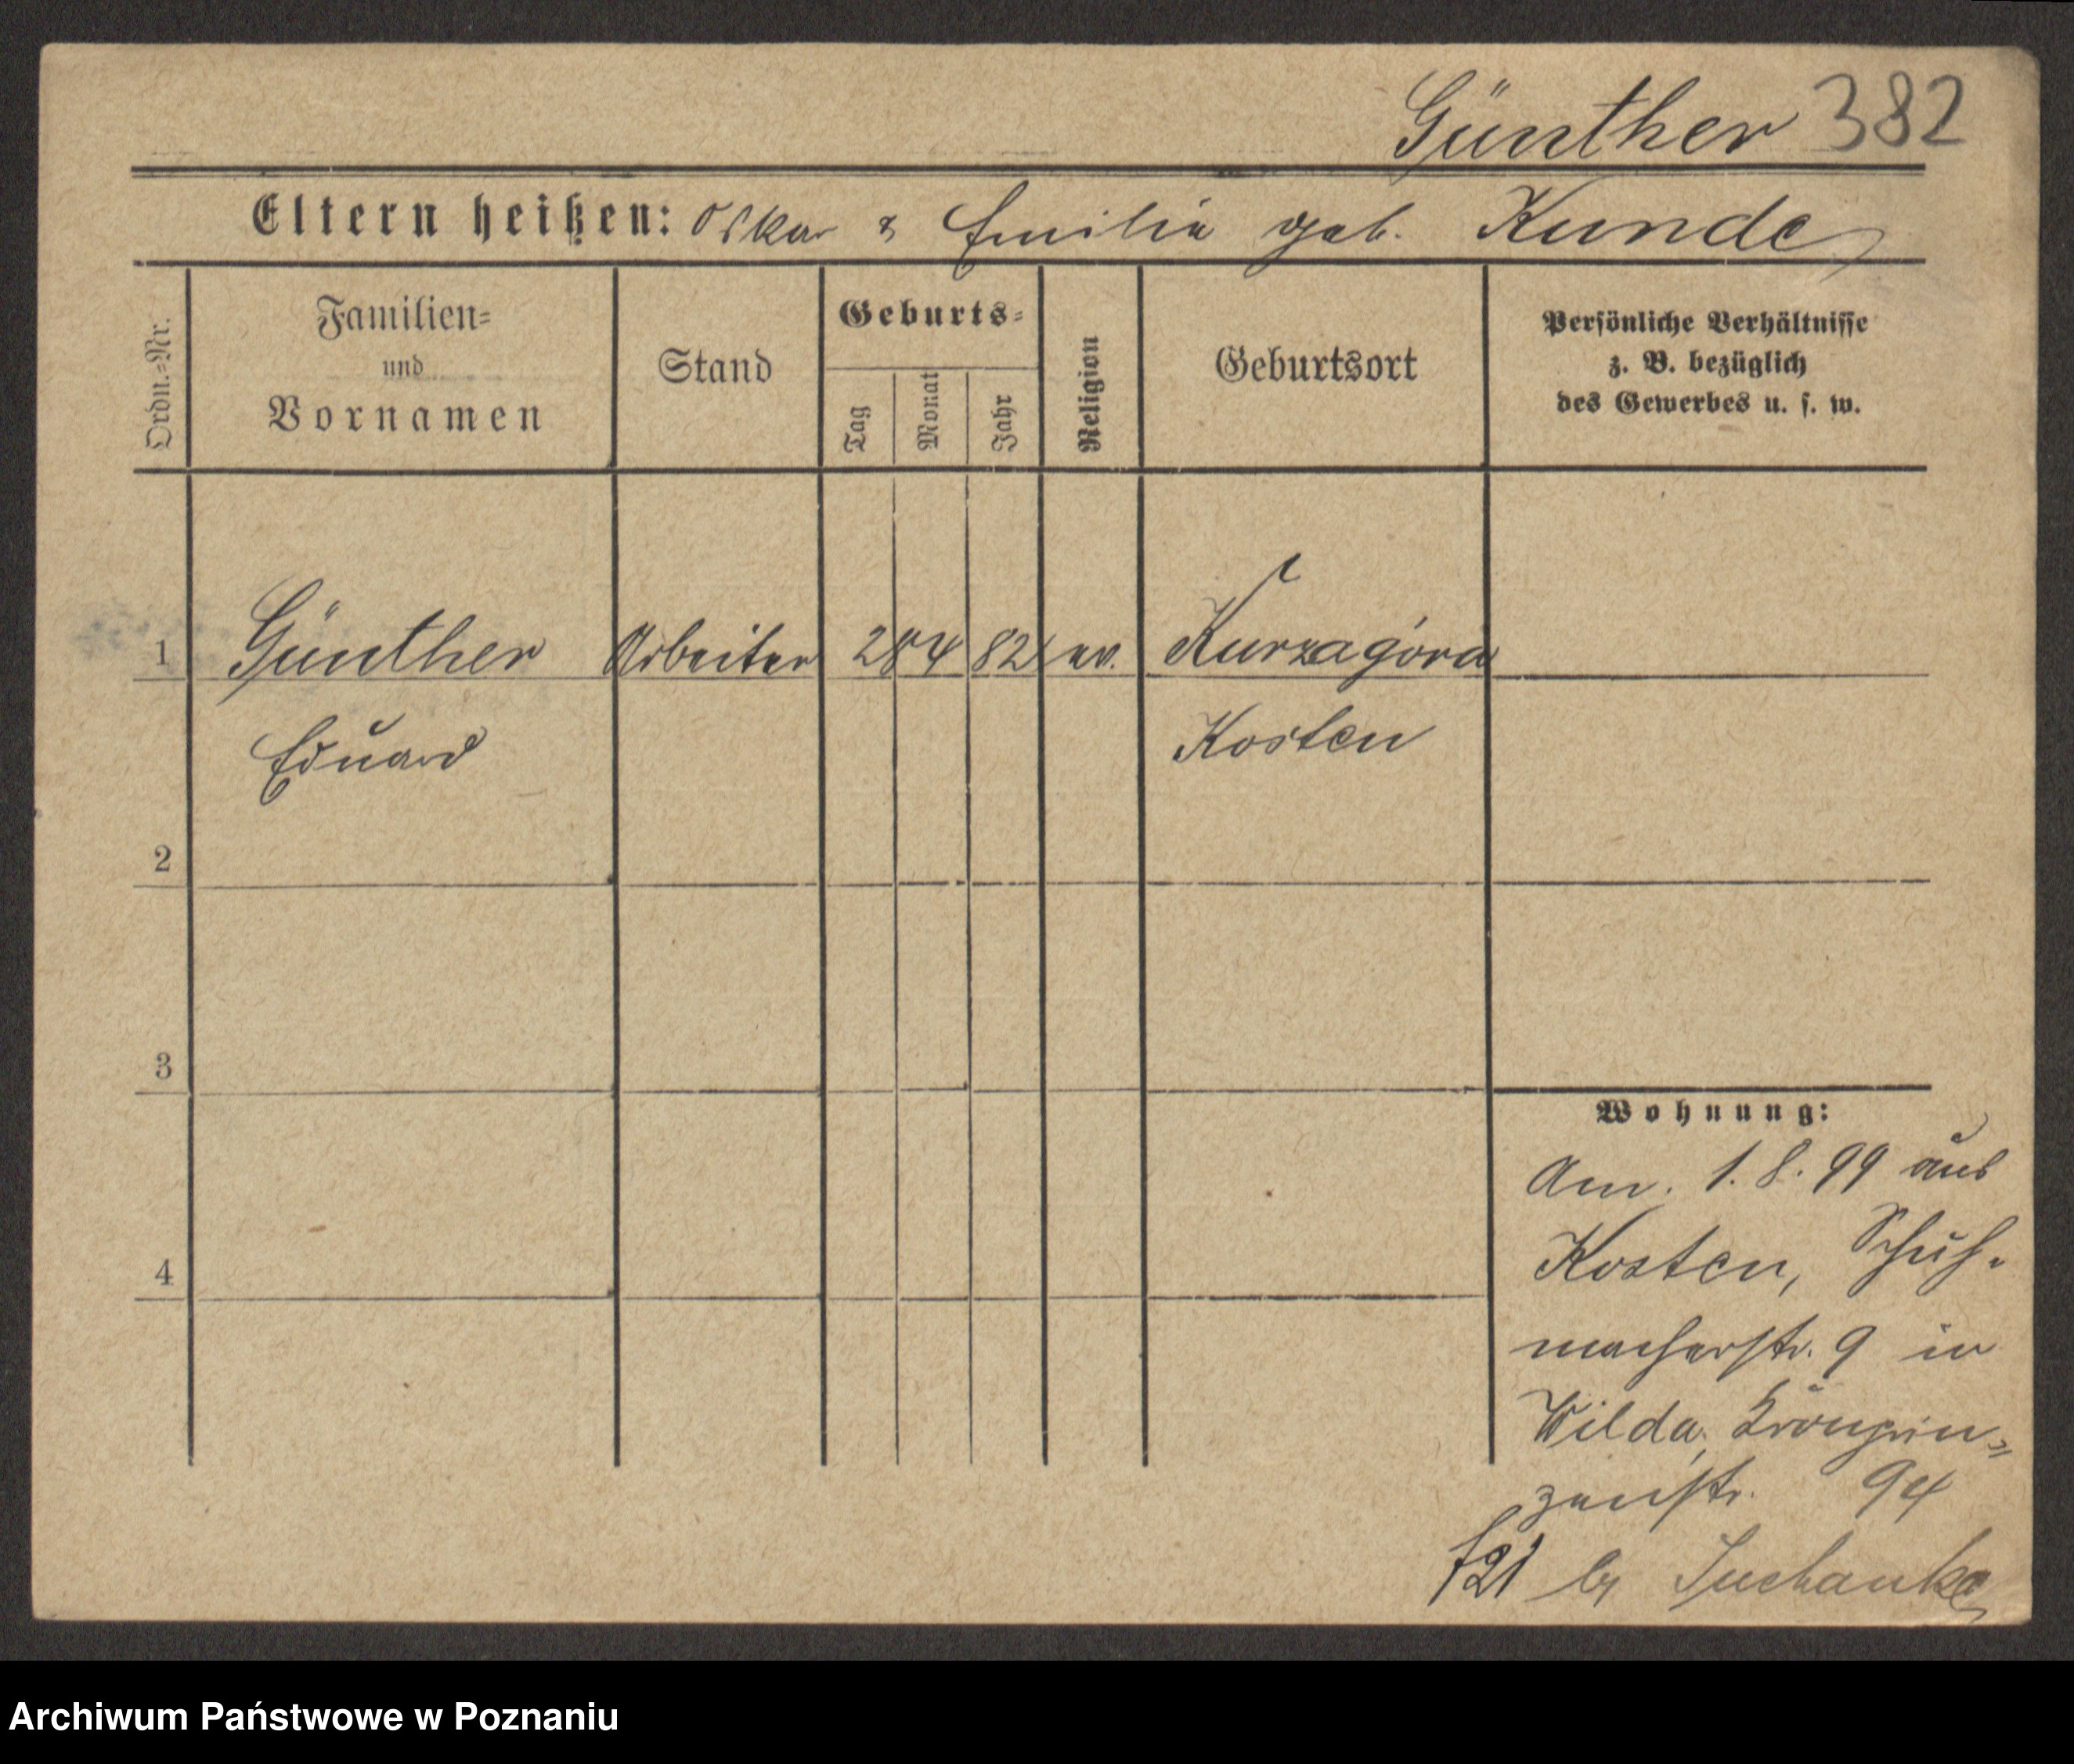 Günther 382
Eltern heißen: Oskar & Emilie geb. Kunde
Ordn.-Nr.
Familien-
und
Vornamen
Stand
Geburts-
Tag
Monat
Jahr
Religion
Geburtsort
Persönliche Verhältnisse
z. B. bezüglich
des Gewerbes u. s. w.
1 Günther Arbeiter 28 4 82 ev. Kurzagóra
Eduard Kosten
2
3
4
Wohnung:
Am. 1. 8. 99 aus
Kosten, Schuh-
macherstr. 9 in
Wilda, Kronprin-
zenstr. 94
bei Suchanke
Archiwum Państwowe w Poznaniu